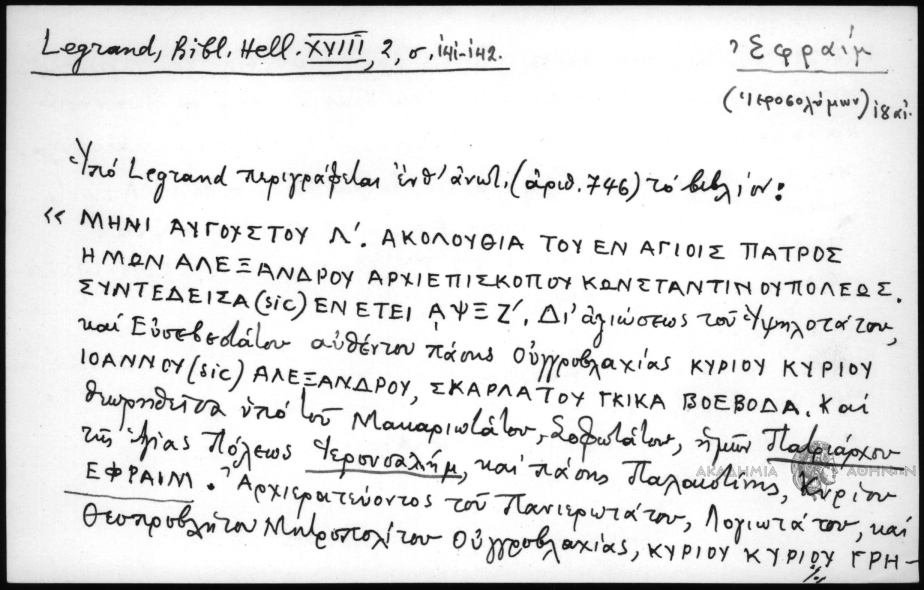 Legrand, Bibl. Hell. XVIII, 2, σ. 141-142.
Ἐφραίμ
(Ἱεροσολύμων) 18 αἰ.
Ὑπό Legrand περιγράφεται ἔνθ' ἀνωτ. (ἀριθ. 746) τό βιβλίον:
«ΜΗΝΙ ΑΥΓΟΥΣΤΟΥ Λ'. ΑΚΟΛΟΥΘΙΑ ΤΟΥ ΕΝ ΑΓΙΟΙΣ ΠΑΤΡΟΣ
ΗΜΩΝ ΑΛΕΞΑΝΔΡΟΥ ΑΡΧΙΕΠΙΣΚΟΠΟΥ ΚΩΝΣΤΑΝΤΙΝΟΥΠΟΛΕΩΣ.
ΣΥΝΤΕΔΕΙΣΑ (sic) ΕΝ ΕΤΕΙ ͵ΑΨΞΖ'. Δι' ἀξιώσεως τοῦ Ὑψηλοτάτου,
καί Εὐσεβεστάτου αὐθέντου πάσης Οὐγγροβλαχίας ΚΥΡΙΟΥ ΚΥΡΙΟΥ
ΙΟΑΝΝΟΥ (sic) ΑΛΕΞΑΝΔΡΟΥ, ΣΚΑΡΛΑΤΟΥ ΓΚΙΚΑ ΒΟΕΒΟΔΑ. Καί
θεωρηθεῖσα ὑπό τοῦ Μακαριωτάτου, Σοφωτάτου, ἡμῶν Πατριάρχου
τῆς Ἁγίας Πόλεως Ἱερουσαλήμ, καί πάσης Παλαιστίνης, Κυρίου
ΕΦΡΑΙΜ. Ἀρχιερατεύοντος τοῦ Πανιερωτάτου, Λογιωτάτου, καί
Θεοπροβλήτου Μητροπολίτου Οὐγγροβλαχίας, ΚΥΡΙΟΥ ΚΥΡΙΟΥ ΓΡΗ-
./.
ΑΚΑΔΗΜΙΑ ΑΘΗΝΩΝ